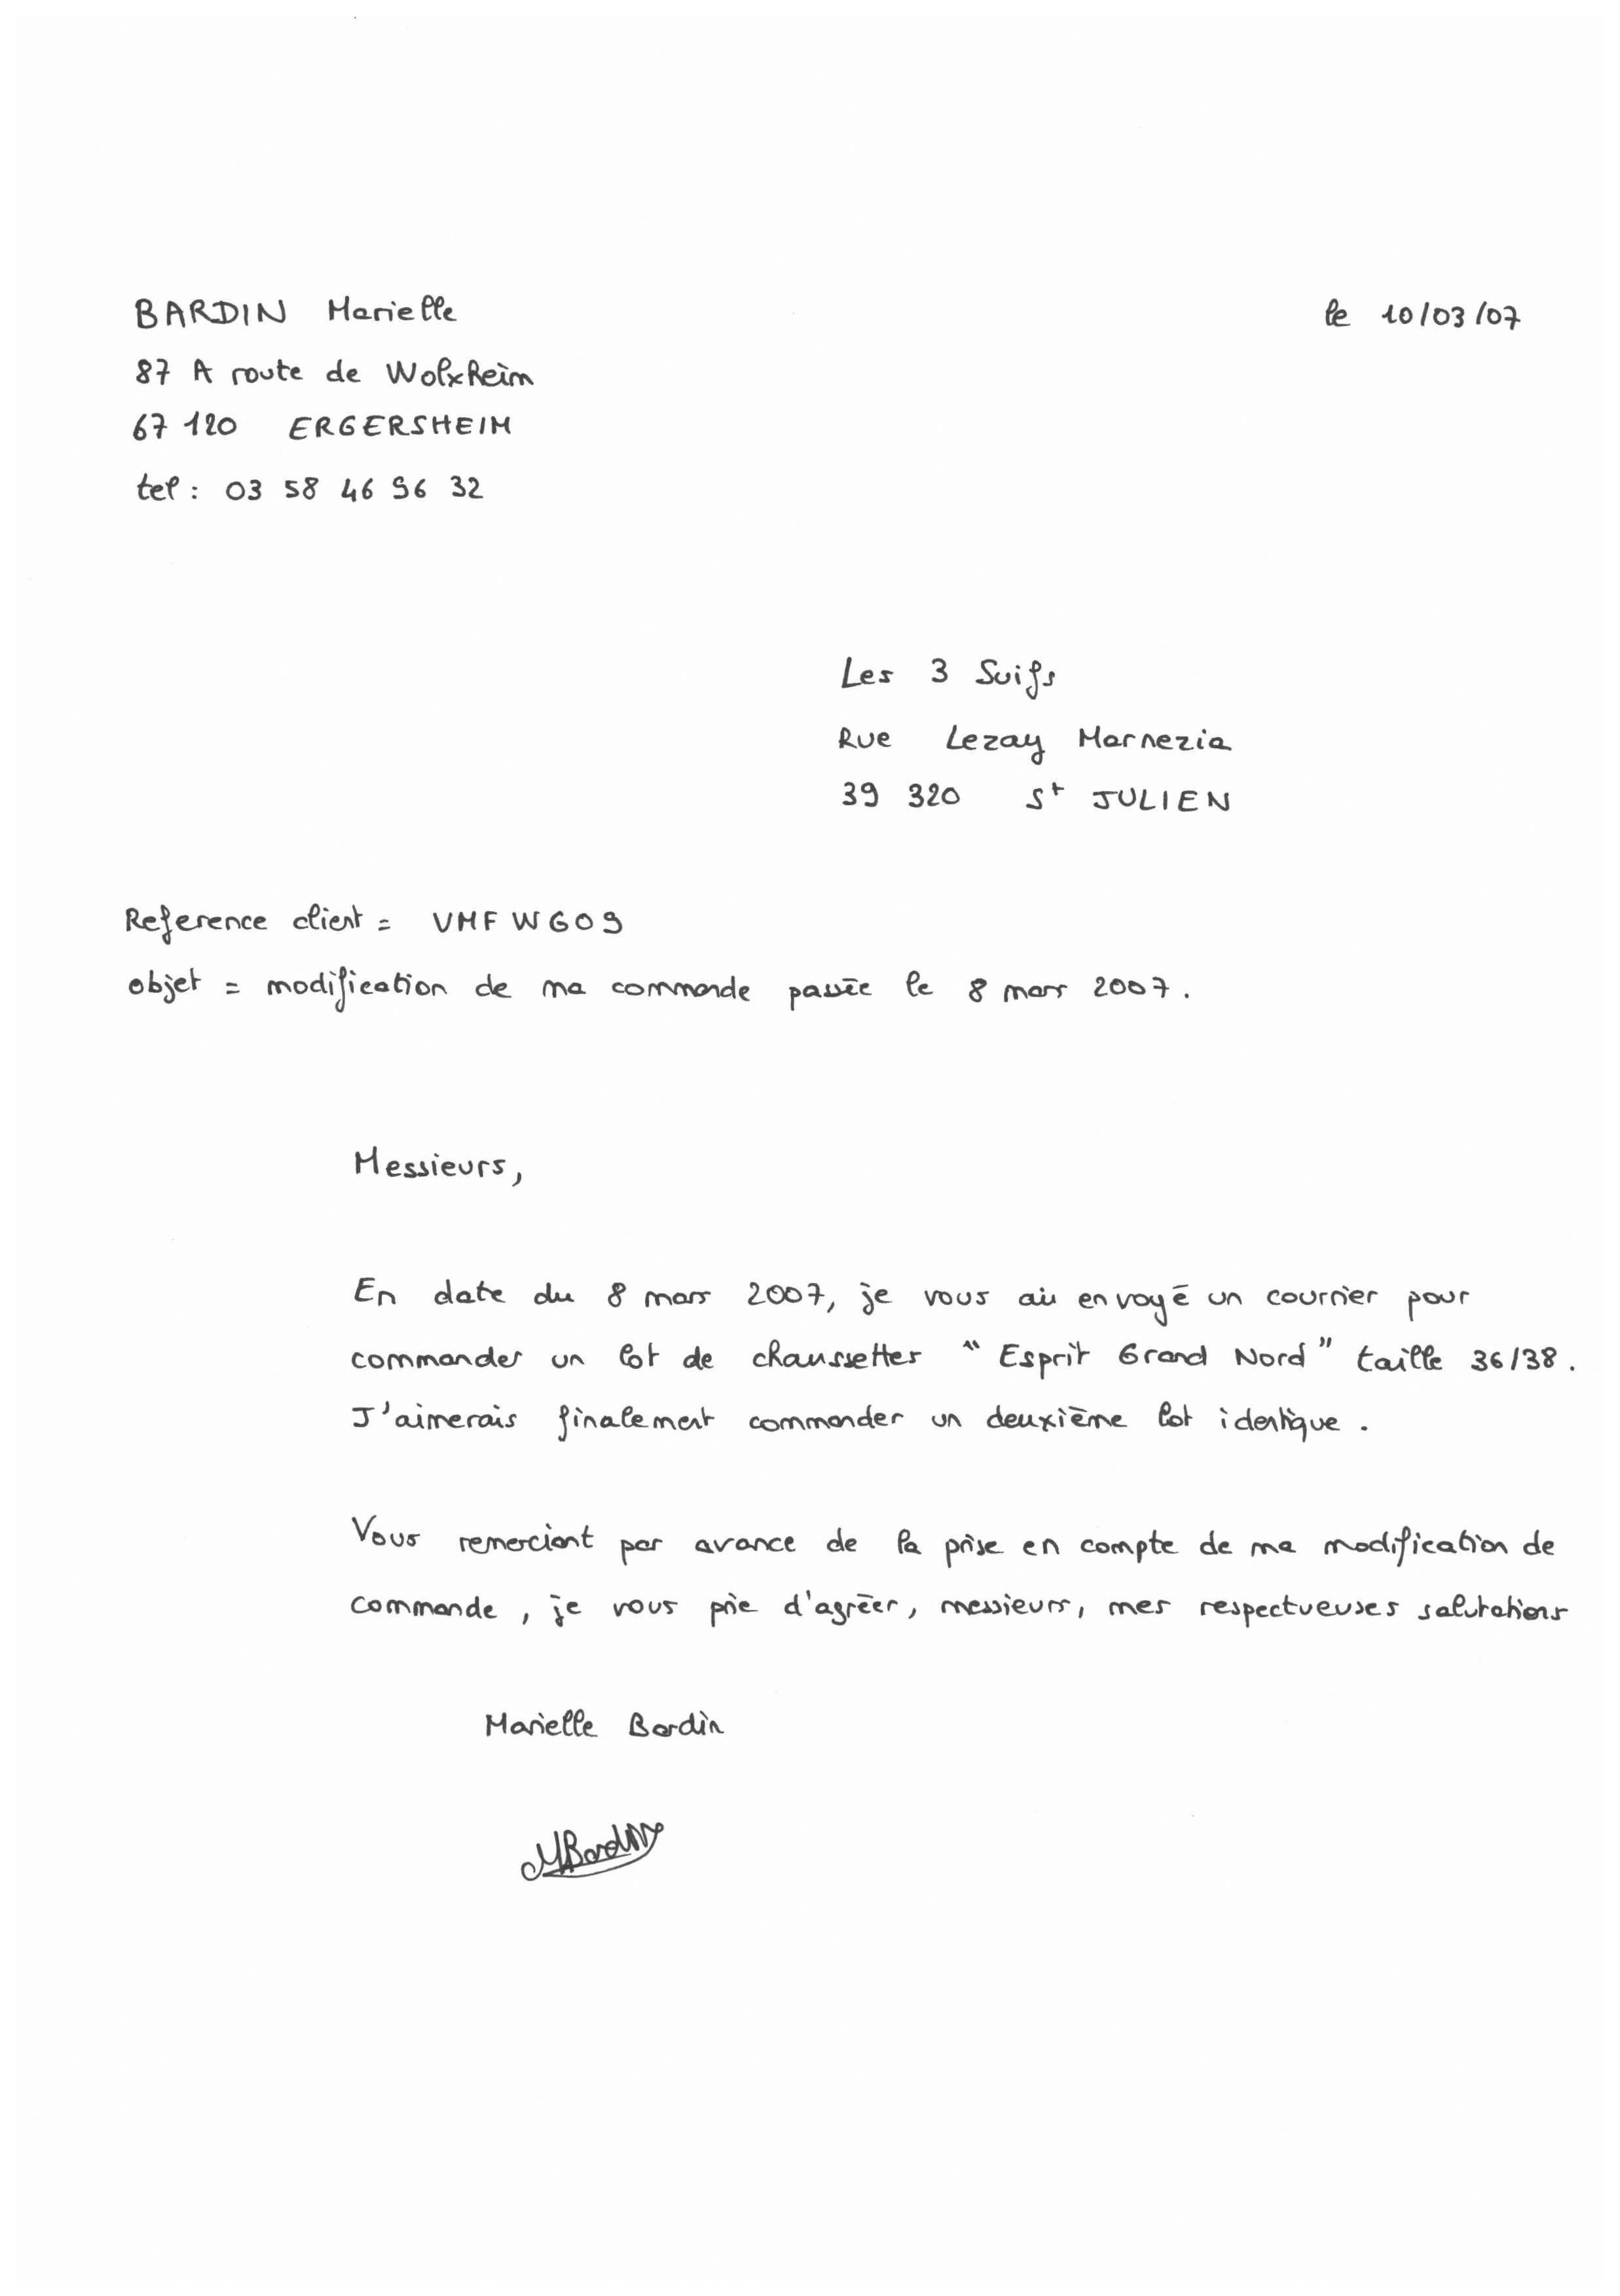 BARDIN Marielle
le 10/03/07
87 A route de Wolxheim
67 120 ERGERSHEIM
tel : 03 58 46 96 32
Les 3 Suifs
Rue Lezay Marnezia
39 320 St JULIEN
Reference client = VMFWG09
objet = modification de ma commande passée le 8 mars 2007.
Messieurs,
En date du 8 mars 2007, je vous ai envoyé un courrier pour
commander un lot de chaussettes " Esprit Grand Nord " taille 36/38.
J'aimerais finalement commander un deuxième lot identique.
Vous remerciant par avance de la prise en compte de ma modification de
commande, je vous prie d'agréer, messieurs, mes respectueuses salutations
Marielle Bardin
MBardin